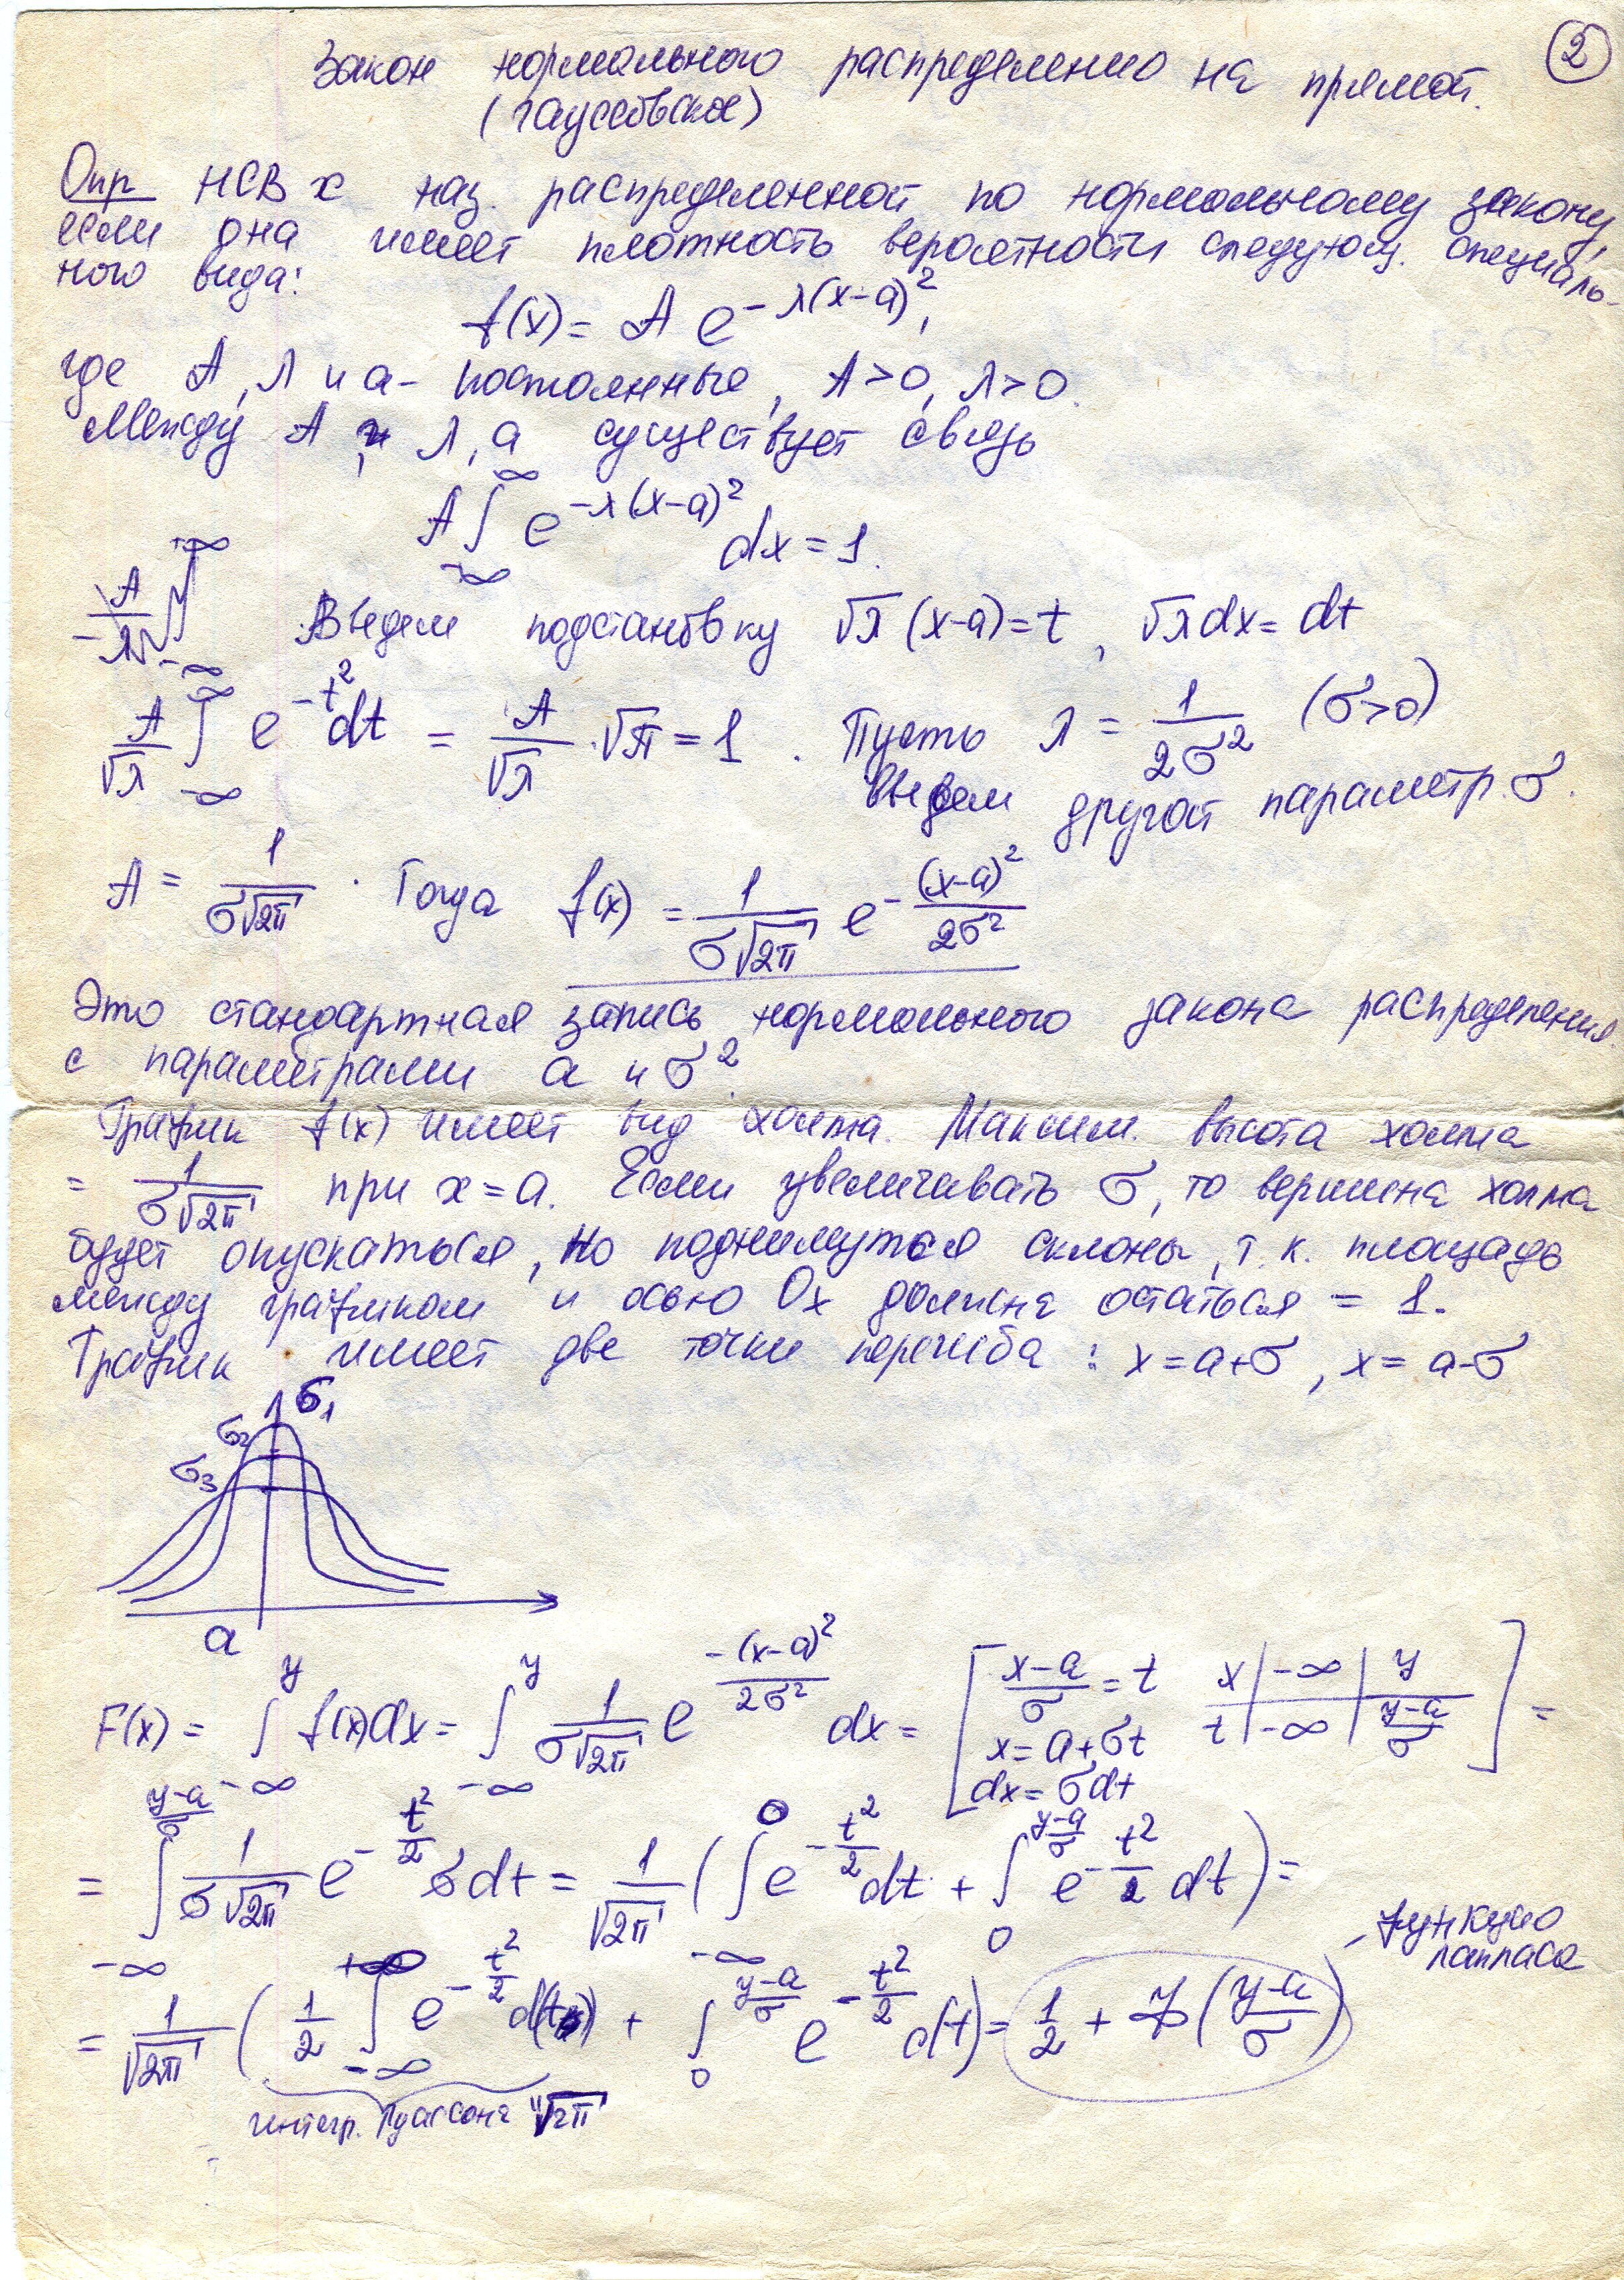 2
Закон нормального распределения на прямой.
(гауссовское)
Опр НСВ x наз. распределенной по нормальному закону,
если она имеет плотность вероятности следующ. специаль-
ного вида:
f(x) = A e^{-λ(x-a)²},
где A, λ и a - постоянные, A>0, λ>0.
Между A, λ, a существует связь
A ∫_{-∞}^{∞} e^{-λ(x-a)²} dx = 1.
Введем подстановку √λ (x-a) = t, √λ dx = dt
A/√λ ∫_{-∞}^{∞} e^{-t²} dt = A/√λ · √π = 1. Пусть λ = 1/(2σ²) (σ>0)
Введем другой параметр σ.
A = 1/(σ√2π). Тогда f(x) = 1/(σ√2π) e^{-(x-a)²/(2σ²)}
Это стандартная запись нормального закона распределения
с параметрами a и σ².
График f(x) имеет вид холма. Максим. высота холма
= 1/(σ√2π) при x = a. Если увеличивать σ, то вершина холма
будет опускаться, но поднимутся склоны, т.к. площадь
между графиком и осью Ox должна остаться = 1.
График имеет две точки перегиба: x = a+σ, x = a-σ
σ₁
σ₂
σ₃
a
F(x) = ∫_{-∞}^{y} f(x)dx = ∫_{-∞}^{y} 1/(σ√2π) e^{-(x-a)²/(2σ²)} dx = [ (x-a)/σ = t x | -∞ | y
x = a+σt t | -∞ | (y-a)/σ ] =
dx = σdt
= ∫_{-∞}^{(y-a)/σ} 1/(σ√2π) e^{-t²/2} σdt = 1/√2π ( ∫_{-∞}^{0} e^{-t²/2} dt + ∫_{0}^{(y-a)/σ} e^{-t²/2} dt ) =
функцию
лапласа
= 1/√2π ( 1/2 ∫_{-∞}^{+∞} e^{-t²/2} d(t) + ∫_{0}^{(y-a)/σ} e^{-t²/2} d(t) = 1/2 + Ф((y-a)/σ)
интегр. Пуассона "√2π